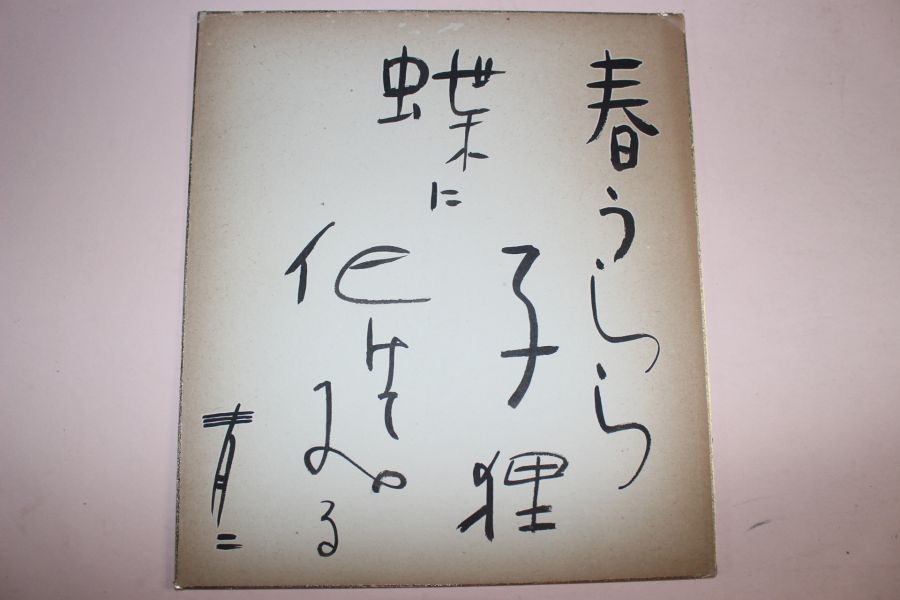 春うらら
子狸
蝶に
化けて
みる
青二